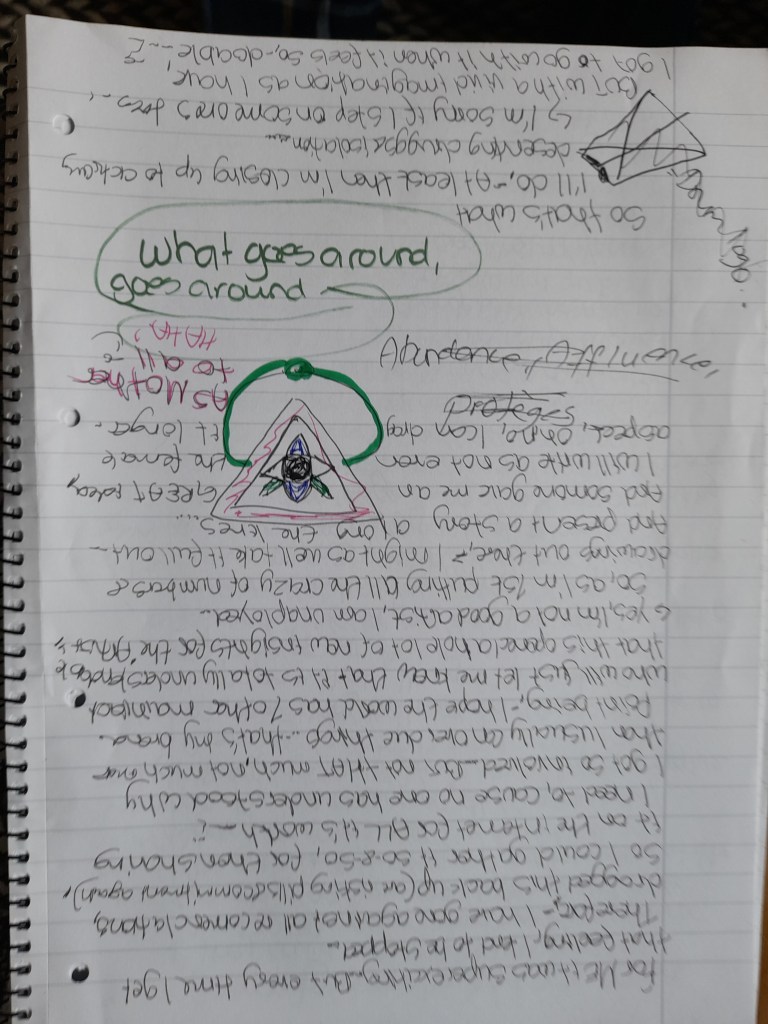 For ME it was super exciting.. But every time I get
that feeling, I tend to be stopped..
Therefor,- I have gone against all recomenclations,
dragged this back up (as risking pills&commitment again),
So I could gather it so&so, for then sharing
it on the internet for ALL it's worth..
I need to, cause no one has understood why
I got so involved.. But not tHAT much, not much mor
than I usually can over due things... that's my brand.
Point being,- I hope the world has 7 other
who will just let me know that it is totally
that this opened a hole lot of new insights for the "Artist"
Yes, I'm not a good artist, I am unaployed...
So, as I'm 1st putting all the crazy of numbers &
drawings out there,- I might as well take it full out-
And present a story along the lines...
And someone gave me an GREAT idea,
I will write as not even the female
aspect, oh no, I can drag it longer.
AS Mother
to all
HA HA
what goes around,
goes around
So that's what
I'll do,- At least then I'm closing up to
deserving drugged isolation...
I'm sorry if I step on someones toes..
BUT with a vivid imagination as I have
I got to go with it when it feels so,- doable...